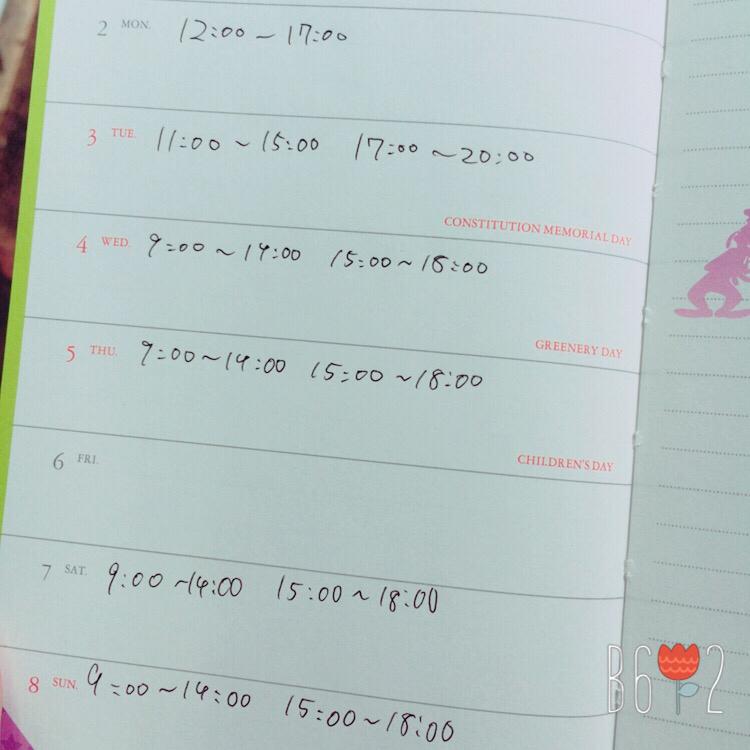 2 MON. 12:00 ~ 17:00
3 TUE. 11:00 ~ 15:00 17:00 ~ 20:00
CONSTITUTION MEMORIAL DAY
4 WED. 9:00 ~ 14:00 15:00 ~ 18:00
GREENERY DAY
5 THU. 9:00 ~ 14:00 15:00 ~ 18:00
CHILDREN'S DAY
6 FRI.
7 SAT. 9:00 ~ 14:00 15:00 ~ 18:00
8 SUN. 9:00 ~ 14:00 15:00 ~ 18:00
B612